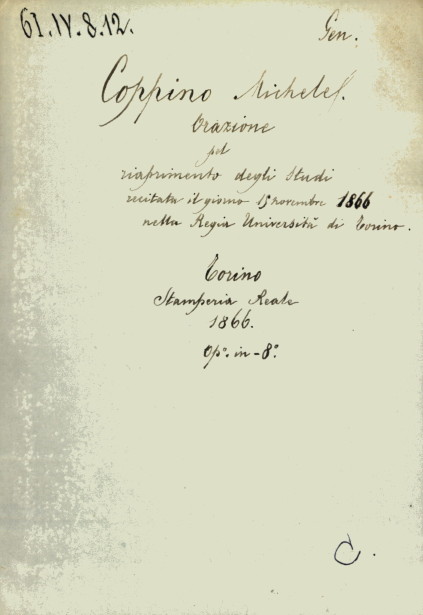 61.IV.8.12.
Gen.
Coppino Michele.
Orazione
pel
riaprimento degli Studi
recitata il giorno 15 novembre 1866
nella Regia Università di Torino.
Torino
Stamperia Reale
1866.
Op°. in-8°.
C.